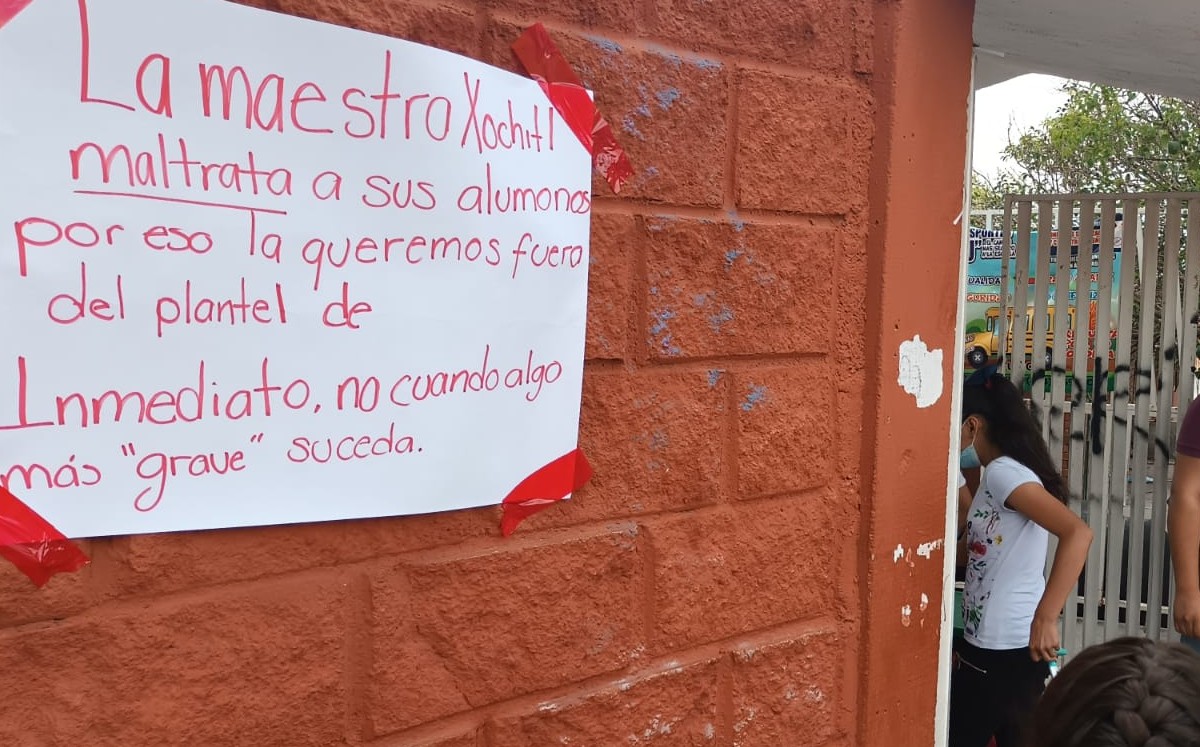 La maestra Xochitl
maltrata a sus alumonos
por eso la queremos fuera
del plantel de
Inmediato, no cuando algo
más "grave" suceda.